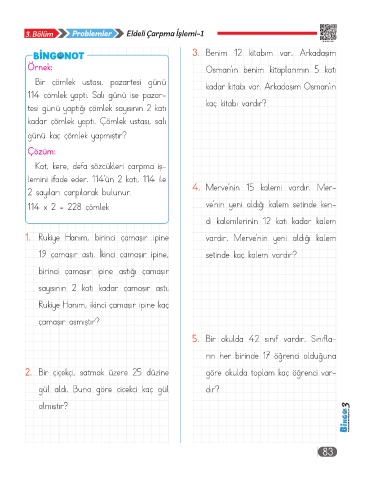 3. Bölüm
Problemler
Eldeli Çarpma İşlemi-1
BİNGO NOT
Örnek:
Bir çömlek ustası, pazartesi günü
114 çömlek yaptı. Salı günü ise pazar-
tesi günü yaptığı çömlek sayısının 2 katı
kadar çömlek yaptı. Çömlek ustası, salı
günü kaç çömlek yapmıştır?
Çözüm:
Kat, kere, defa sözcükleri çarpma iş-
lemini ifade eder. 114'ün 2 katı, 114 ile
2 sayıları çarpılarak bulunur.
114 x 2 = 228 çömlek
1. Rukiye Hanım, birinci çamaşır ipine
19 çamaşır astı. İkinci çamaşır ipine,
birinci çamaşır ipine astığı çamaşır
sayısının 2 katı kadar çamaşır astı.
Rukiye Hanım, ikinci çamaşır ipine kaç
çamaşır asmıştır?
2. Bir çiçekçi, satmak üzere 25 düzine
gül aldı. Buna göre çiçekci kaç gül
almıştır?
3. Benim 12 kitabım var. Arkadaşım
Osman'ın benim kitaplarımın 5 katı
kadar kitabı var. Arkadaşım Osman'ın
kaç kitabı vardır?
4. Merve'nin 15 kalemi vardır. Mer-
ve'nin yeni aldığı kalem setinde ken-
di kalemlerinin 12 katı kadar kalem
vardır. Merve'nin yeni aldığı kalem
setinde kaç kalem vardır?
5. Bir okulda 42 sınıf vardır. Sınıfla-
rın her birinde 17 öğrenci olduğuna
göre okulda toplam kaç öğrenci var-
dır?
BİNGO 3
83